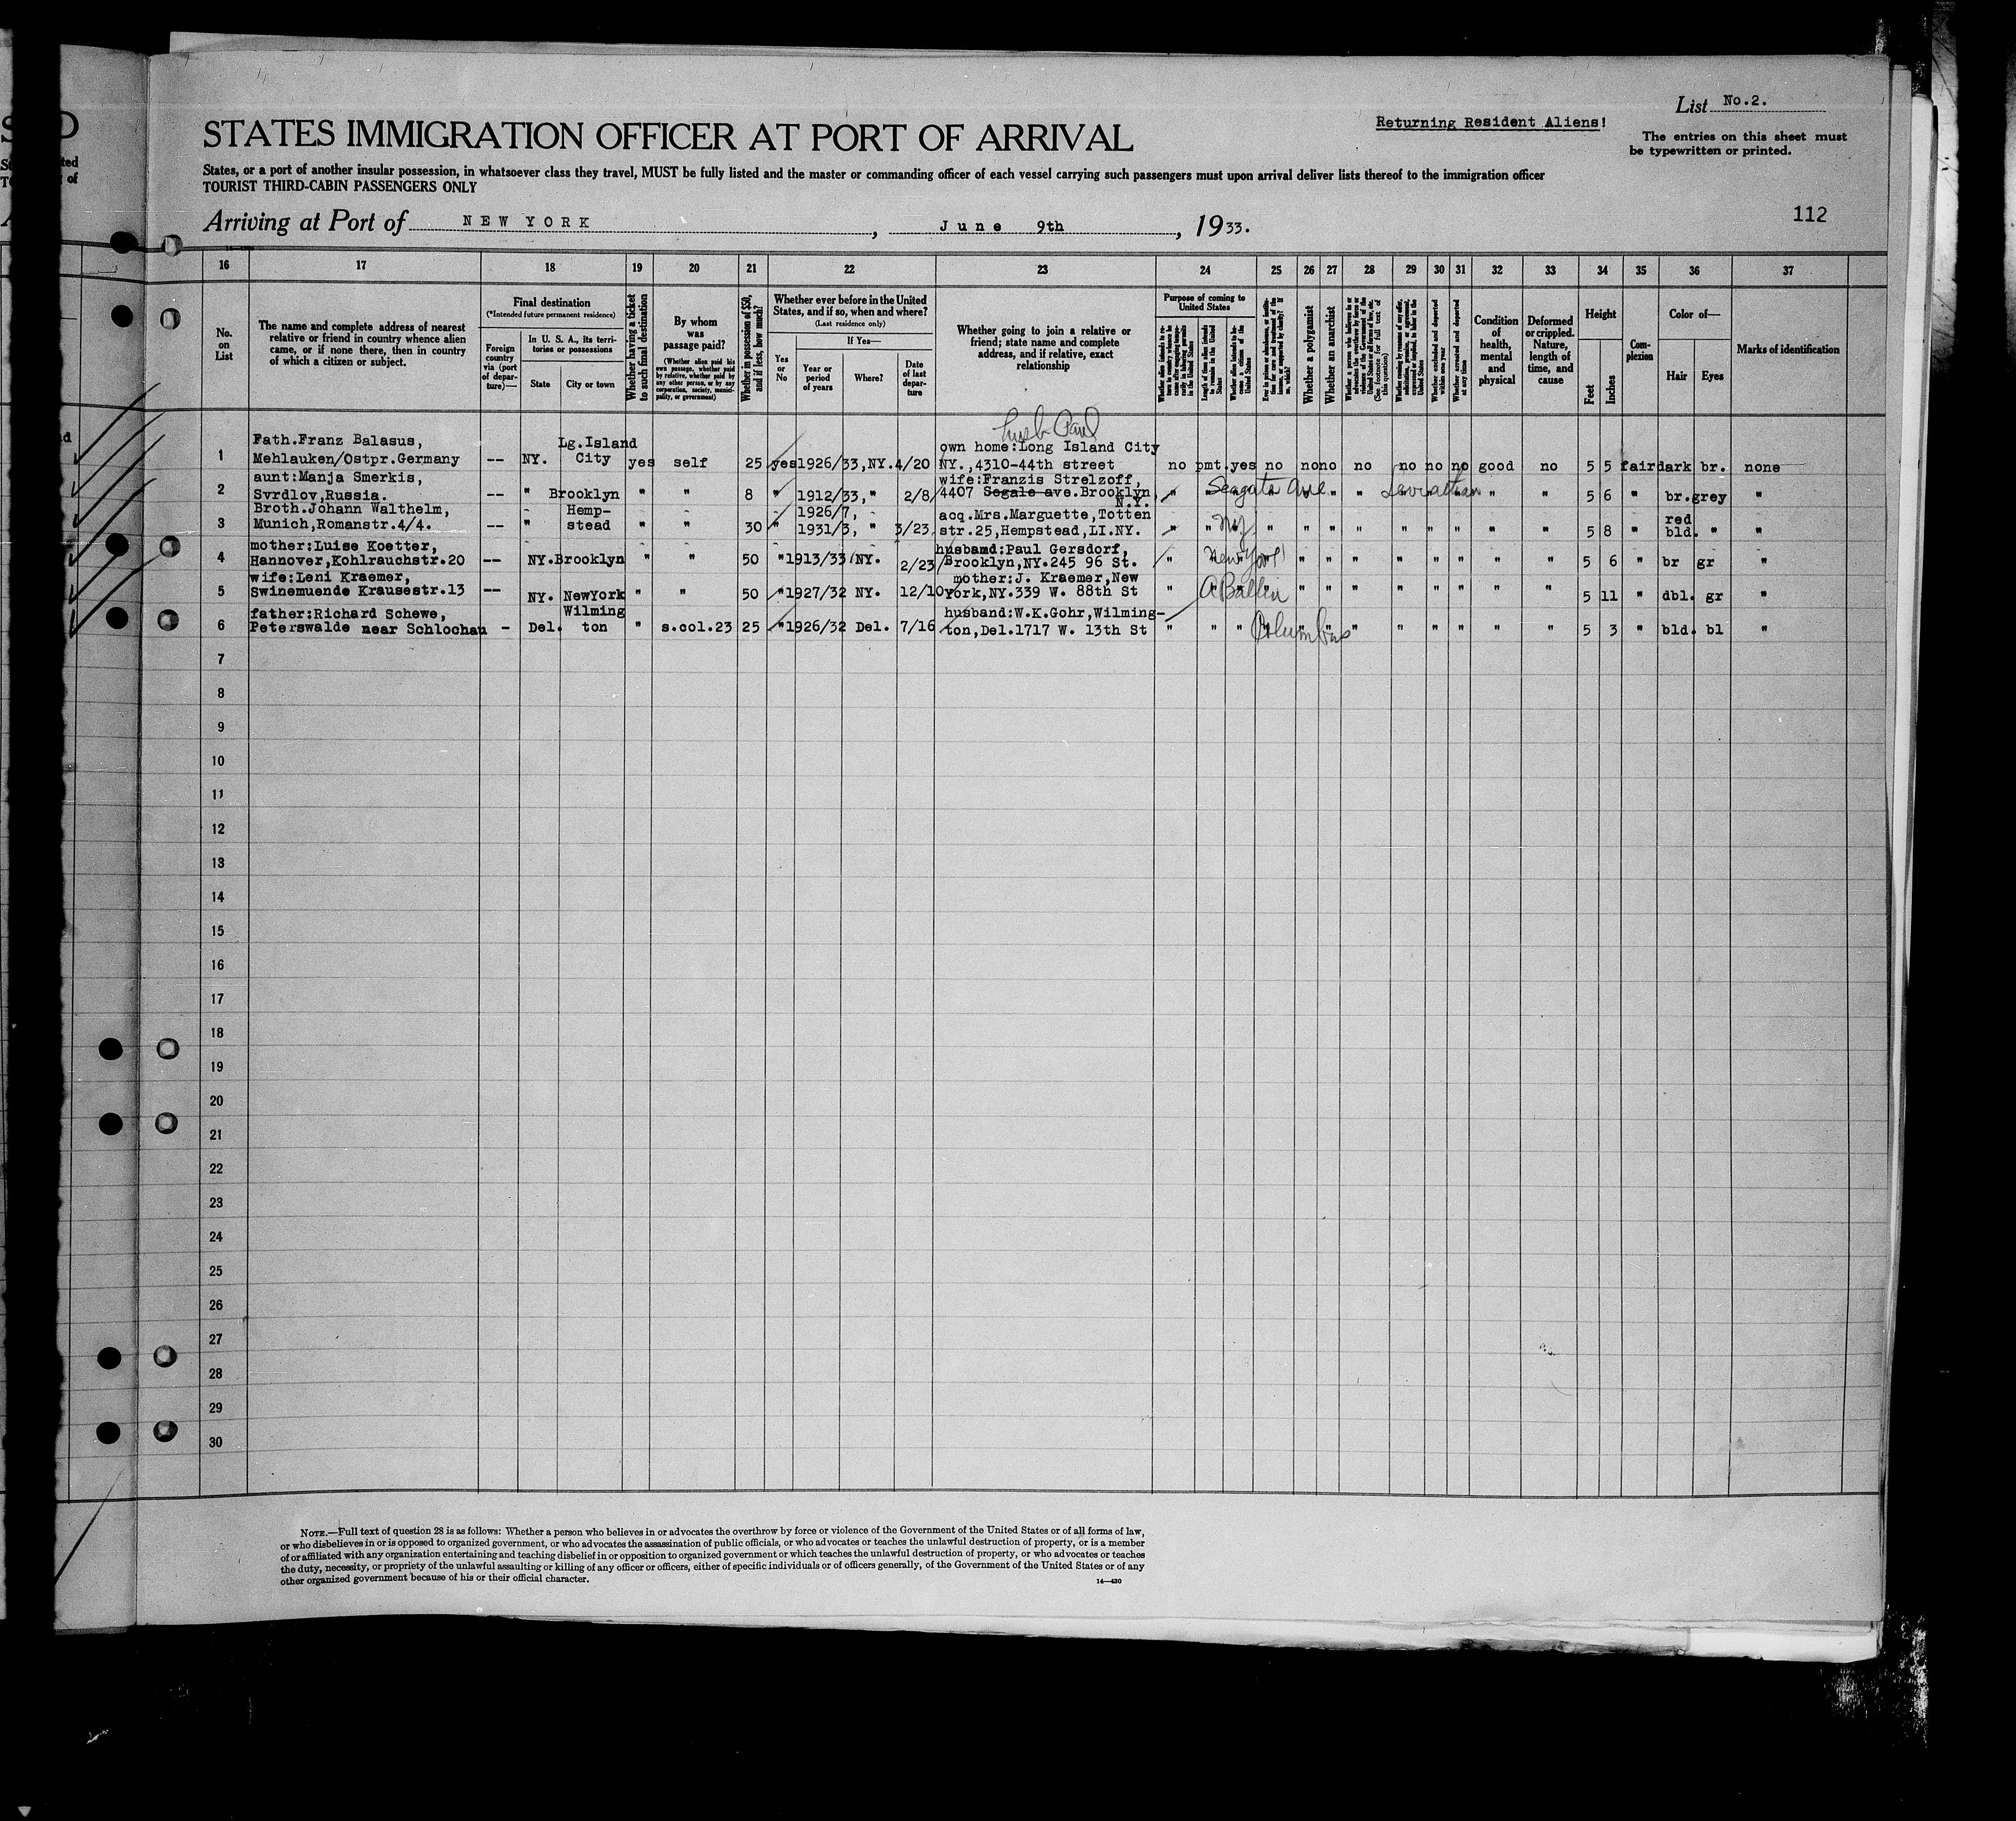 List No.2.
Returning Resident Aliens!
The entries on this sheet must
be typewritten or printed.
STATES IMMIGRATION OFFICER AT PORT OF ARRIVAL
States, or a port of another insular possession, in whatsoever class they travel, MUST be fully listed and the master or commanding officer of each vessel carrying such passengers must upon arrival deliver lists thereof to the immigration officer
TOURIST THIRD-CABIN PASSENGERS ONLY
Arriving at Port of NEW YORK, June 9th, 1933.
112
16 17 18 19 20 21 22 23 24 25 26 27 28 29 30 31 32 33 34 35 36 37
No. on List
The name and complete address of nearest
relative or friend in country whence alien
came, or if none there, then in country
of which a citizen or subject.
Final destination
(*Intended future permanent residence)
Foreign
country
via (port
of depar-
ture)—
In U. S. A., its terri-
tories or possessions
State
City or town
Whether having a ticket
to such final destination
By whom
was
passage paid?
(Whether alien paid his
own passage, whether paid
by relative, whether paid by
any other person, or by any
corporation, society, munici-
pality, or government)
Whether in possession of $50,
and if less, how much?
Whether ever before in the United
States, and if so, when and where?
(Last residence only)
Yes
or
No
If Yes—
Year or
period
of years
Where?
Date
of last
depar-
ture
Whether going to join a relative or
friend; state name and complete
address, and if relative, exact
relationship
Purpose of coming to
United States
Whether a polygamist
Whether an anarchist
Condition
of
health,
mental
and
physical
Deformed
or crippled.
Nature,
length of
time, and
cause
Height
Feet
Inches
Com-
plexion
Color of—
Hair
Eyes
Marks of identification
husb Paul
Fath.Franz Balasus, Lg.Island own home:Long Island City
1 Mehlauken/Ostpr.Germany -- NY. City yes self 25 yes 1926/33,NY. 4/20 NY.,4310-44th street no pmt. yes no no no no no no no good no 5 5 fair dark br. none
aunt:Manja Smerkis, wife:Franzis Strelzoff,
2 Svrdlov,Russia. -- " Brooklyn " " 8 " 1912/33, " 2/8 4407 Segale ave.Brooklyn, N.Y. " Seagate Ave " " Leviathan " " 5 6 " br. grey "
Broth.Johann Walthelm, Hemp- 1926/7, acq.Mrs.Marguette,Totten
3 Munich,Romanstr.4/4. -- " stead " " 30 " 1931/3, " 3/23 str.25,Hempstead,LI.NY. " " NY " " " " " " " " " 5 8 " red bld. " "
mother:Luise Koetter, husband:Paul Gersdorf,
4 Hannover,Kohlrauchstr.20 -- NY. Brooklyn " " 50 " 1913/33 NY. 2/23 Brooklyn,NY.245 96 St. " New York " " " " " " " " 5 6 " br gr "
wife:Leni Kraemer, mother:J. Kraemer,New
5 Swinemuende Krausestr.13 -- NY. NewYork " " 50 " 1927/32 NY. 12/10 York,NY.339 W. 88th St " A Ballin " " " " " " " " 5 11 " dbl. gr "
father:Richard Schewe, Wilming husband:W.K.Gohr,Wilming-
6 Peterswalde near Schlochau - Del. ton " s.col.23 25 " 1926/32 Del. 7/16 ton,Del.1717 W. 13th St " " " Columbus " " " " " " 5 3 " bld. bl "
7
8
9
10
11
12
13
14
15
16
17
18
19
20
21
22
23
24
25
26
27
28
29
30
NOTE.—Full text of question 28 is as follows: Whether a person who believes in or advocates the overthrow by force or violence of the Government of the United States or of all forms of law,
or who disbelieves in or is opposed to organized government, or who advocates the assassination of public officials, or who advocates or teaches the unlawful destruction of property, or is a member
of or affiliated with any organization entertaining and teaching disbelief in or opposition to organized government or which teaches the unlawful destruction of property, or who advocates or teaches
the duty, necessity, or propriety of the unlawful assaulting or killing of any officer or officers, either of specific individuals or of officers generally, of the Government of the United States or of any
other organized government because of his or their official character.
14—430